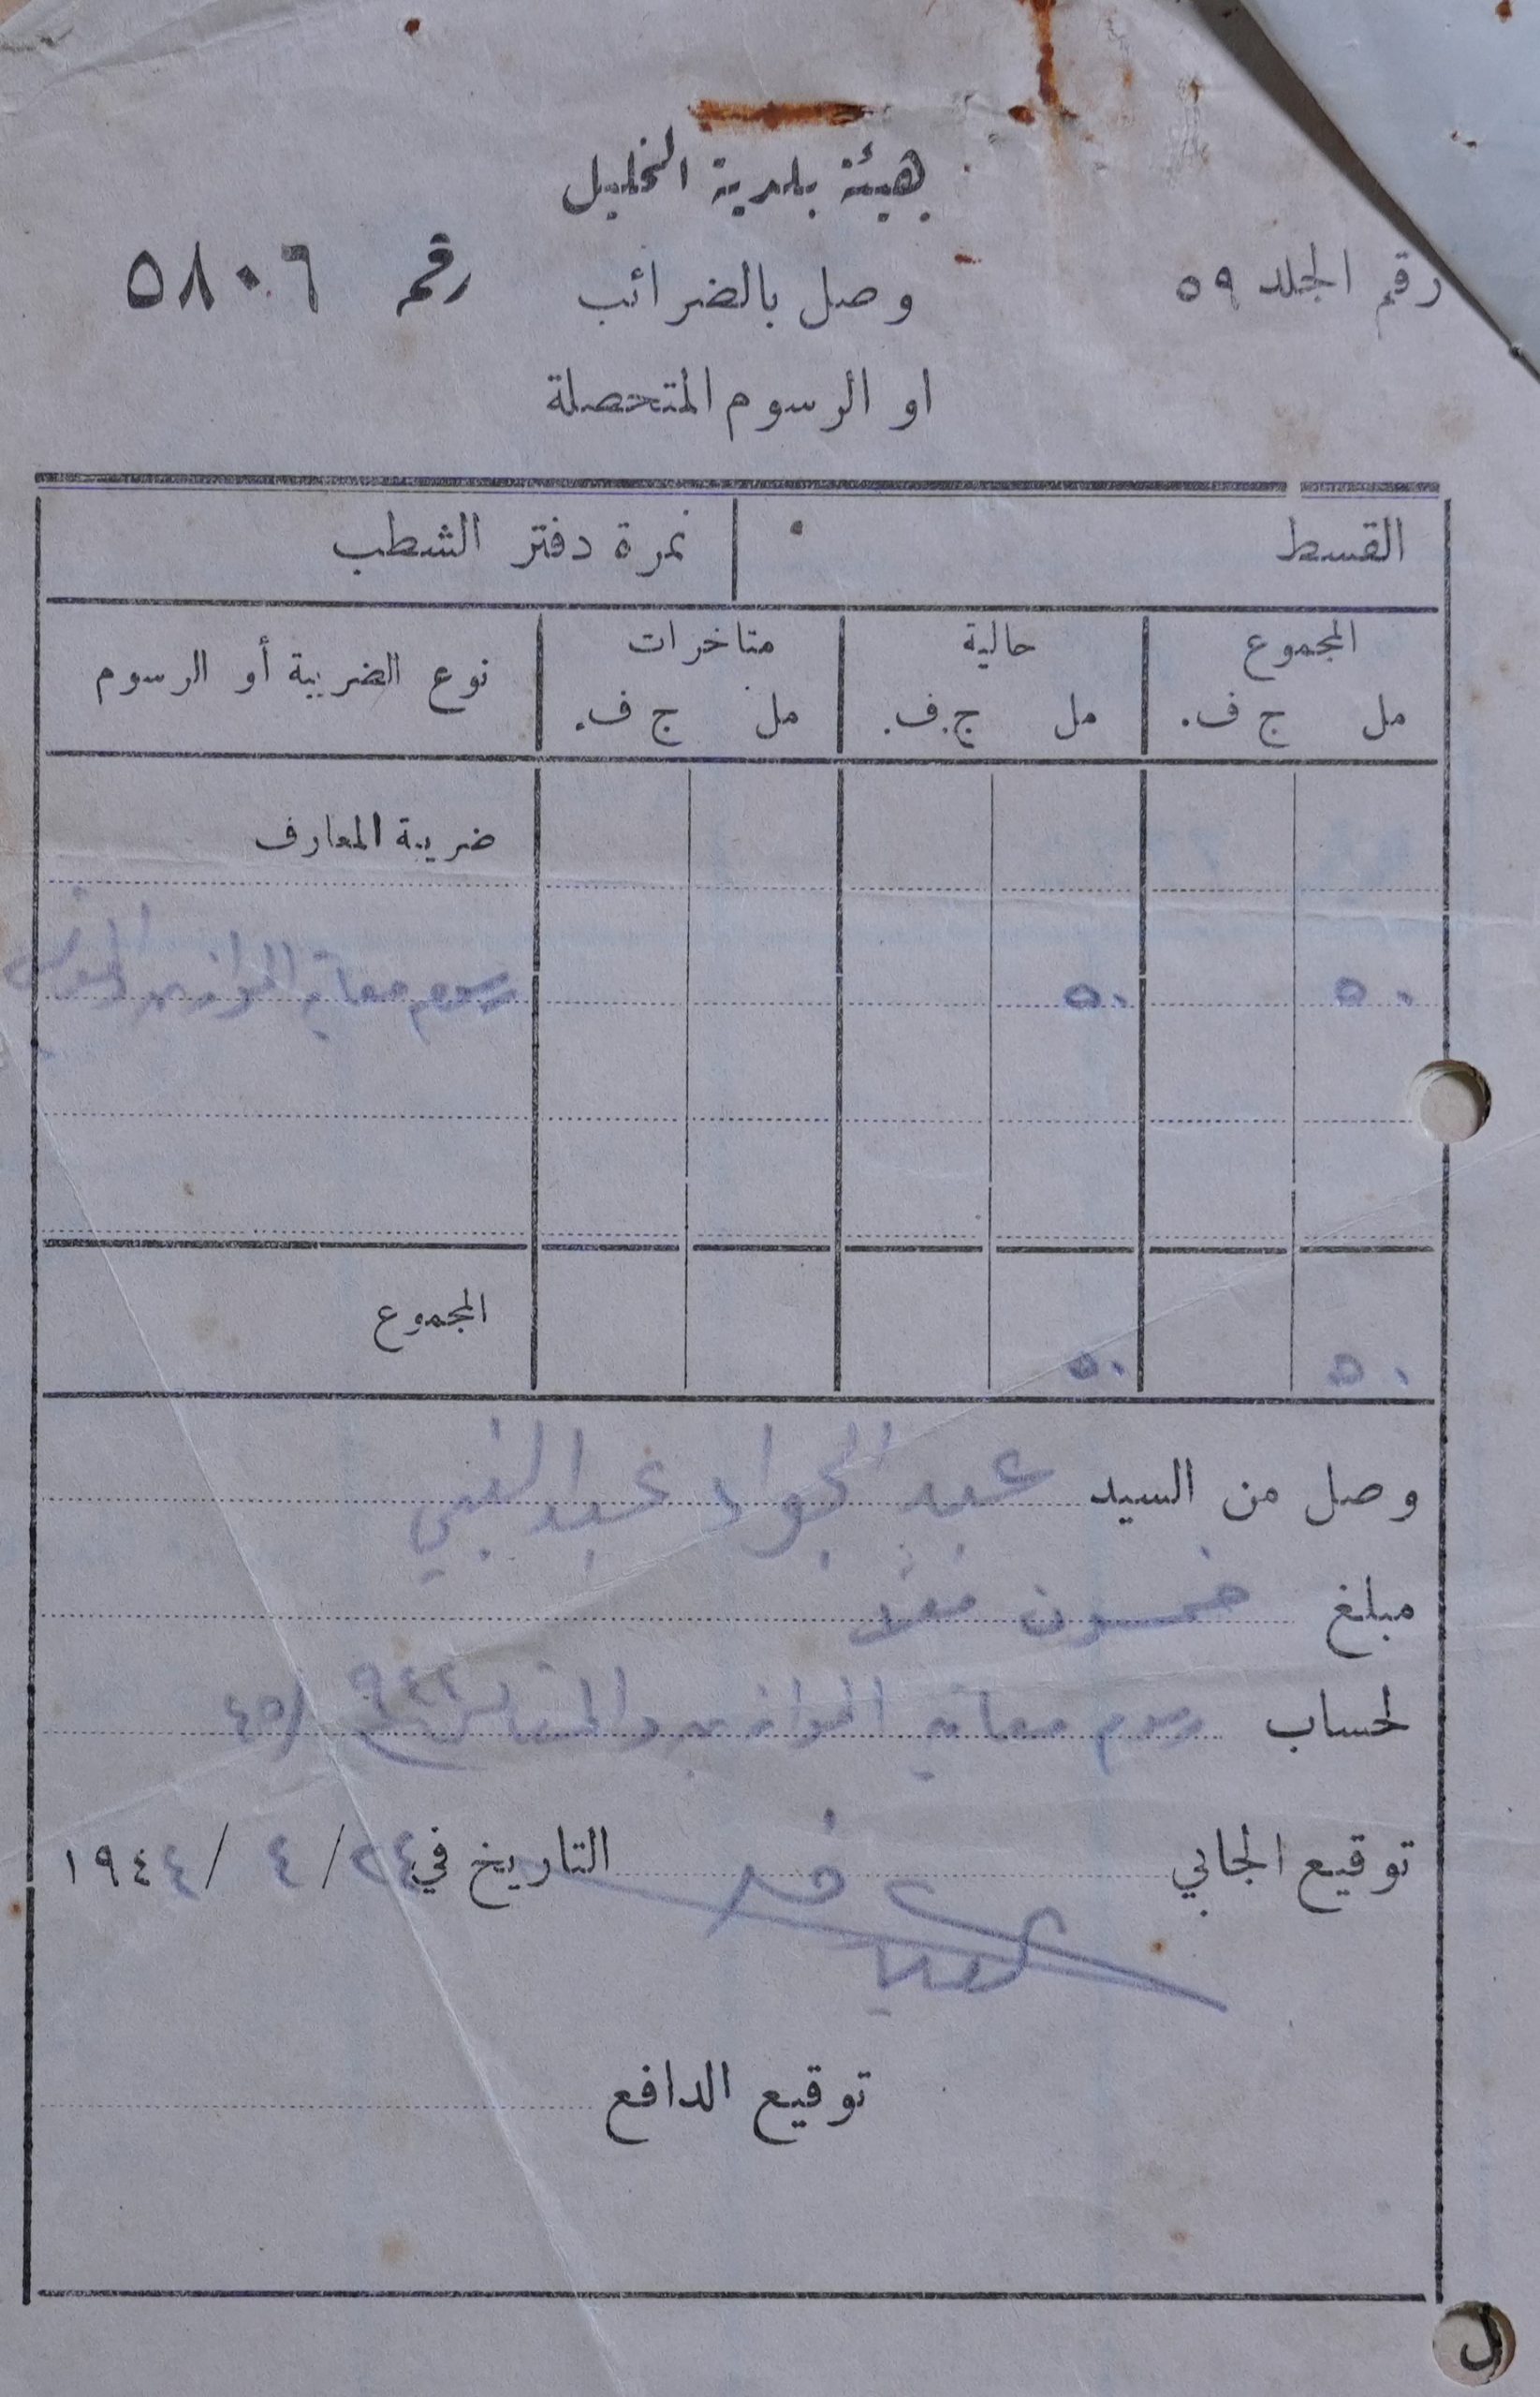 هيئة بلدية الخليل
رقم الجلد ٥٩ وصل بالضرائب رقم ٥٨٠٦
او الرسوم المتحصلة
القسط نمرة دفتر الشطب
المجموع حالية متاخرات نوع الضريبة أو الرسوم
مل ج ف. مل ج. ف. مل ج ف.
ضريبة المعارف
٥٠ ٥٠ رسوم معاينة الموازين
المجموع
٥٠ ٥٠
وصل من السيد عبد الجواد عبد النبي
مبلغ خمسون فقط
لحساب رسوم معاينة الموازين والمقاييس ٤٥/
توقيع الجابي التاريخ في ٢٤/ ٤ / ١٩٤٤
توقيع الدافع